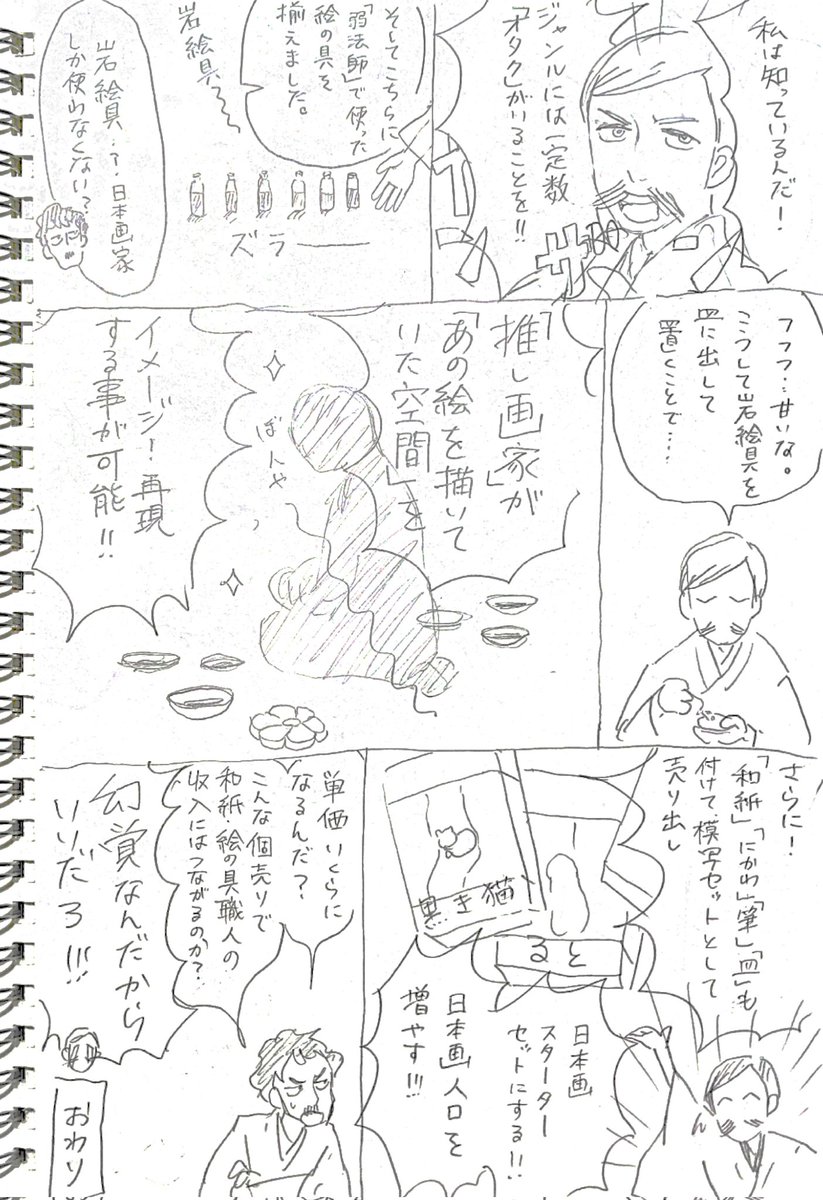 私は知っているんだ！
ジャンルには一定数
「オタク」がいることを!!
そしてこちらに
「弱法師」で使った
絵の具を
揃えました。
岩絵具〜
ズラーーー
岩絵具…？日本画家
しか使わなくない？
フフフ…甘いな。
こうして岩絵具を
皿に出して
置くことで…
「推し画家が
「あの絵を描いて
いた空間」を
ぼんや
イメージ！再現
する事が可能!!
さらに！
「和紙」「にかわ」「筆」「皿」も
付けて模写セットとして
売り出し
黒き猫
ると
日本画
スターター
セットにする!!
日本画人口を
増やす!!!
単価いくらに
なるんだ？
こんな個売りで
和紙・絵の具職人の
収入にはつながるのか？
幻覚なんだから
いいだろ!!!
おわり